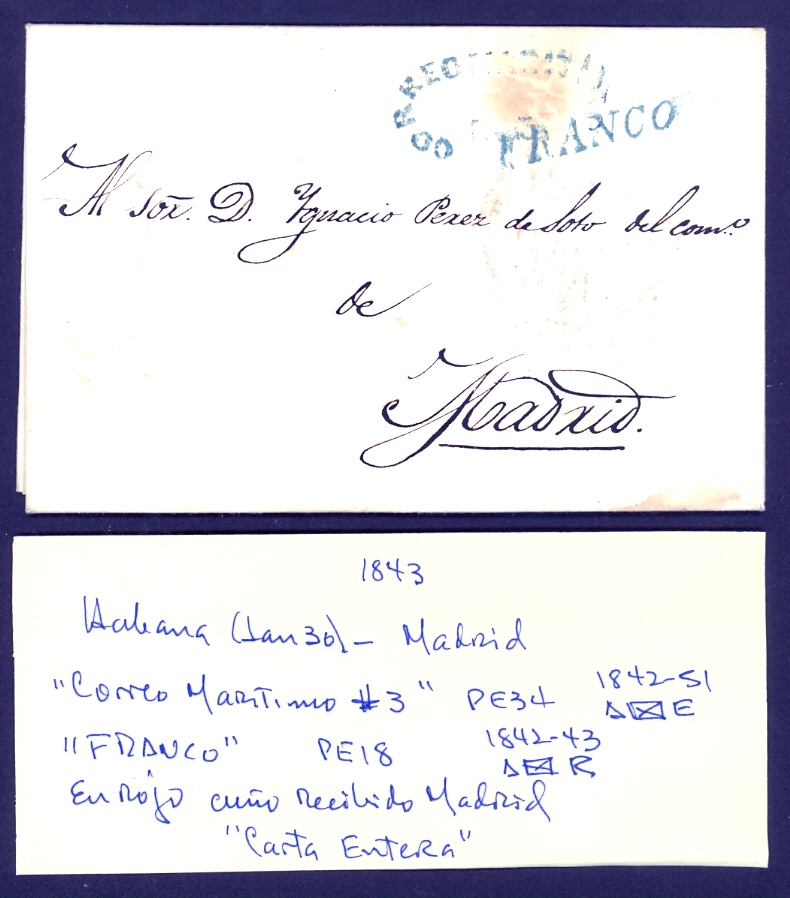 CORREO MARITIMO
FRANCO
Al Sor. D. Ygnacio Perez de Soto del como
de
Madrid.
1843
Habana (Jan 30) - Madrid
"Correo Maritimo #3" PE34 1842-51
E
"FRANCO" PE18 1842-43
R
En Rojo cuño recibido Madrid
"Carta Entera"